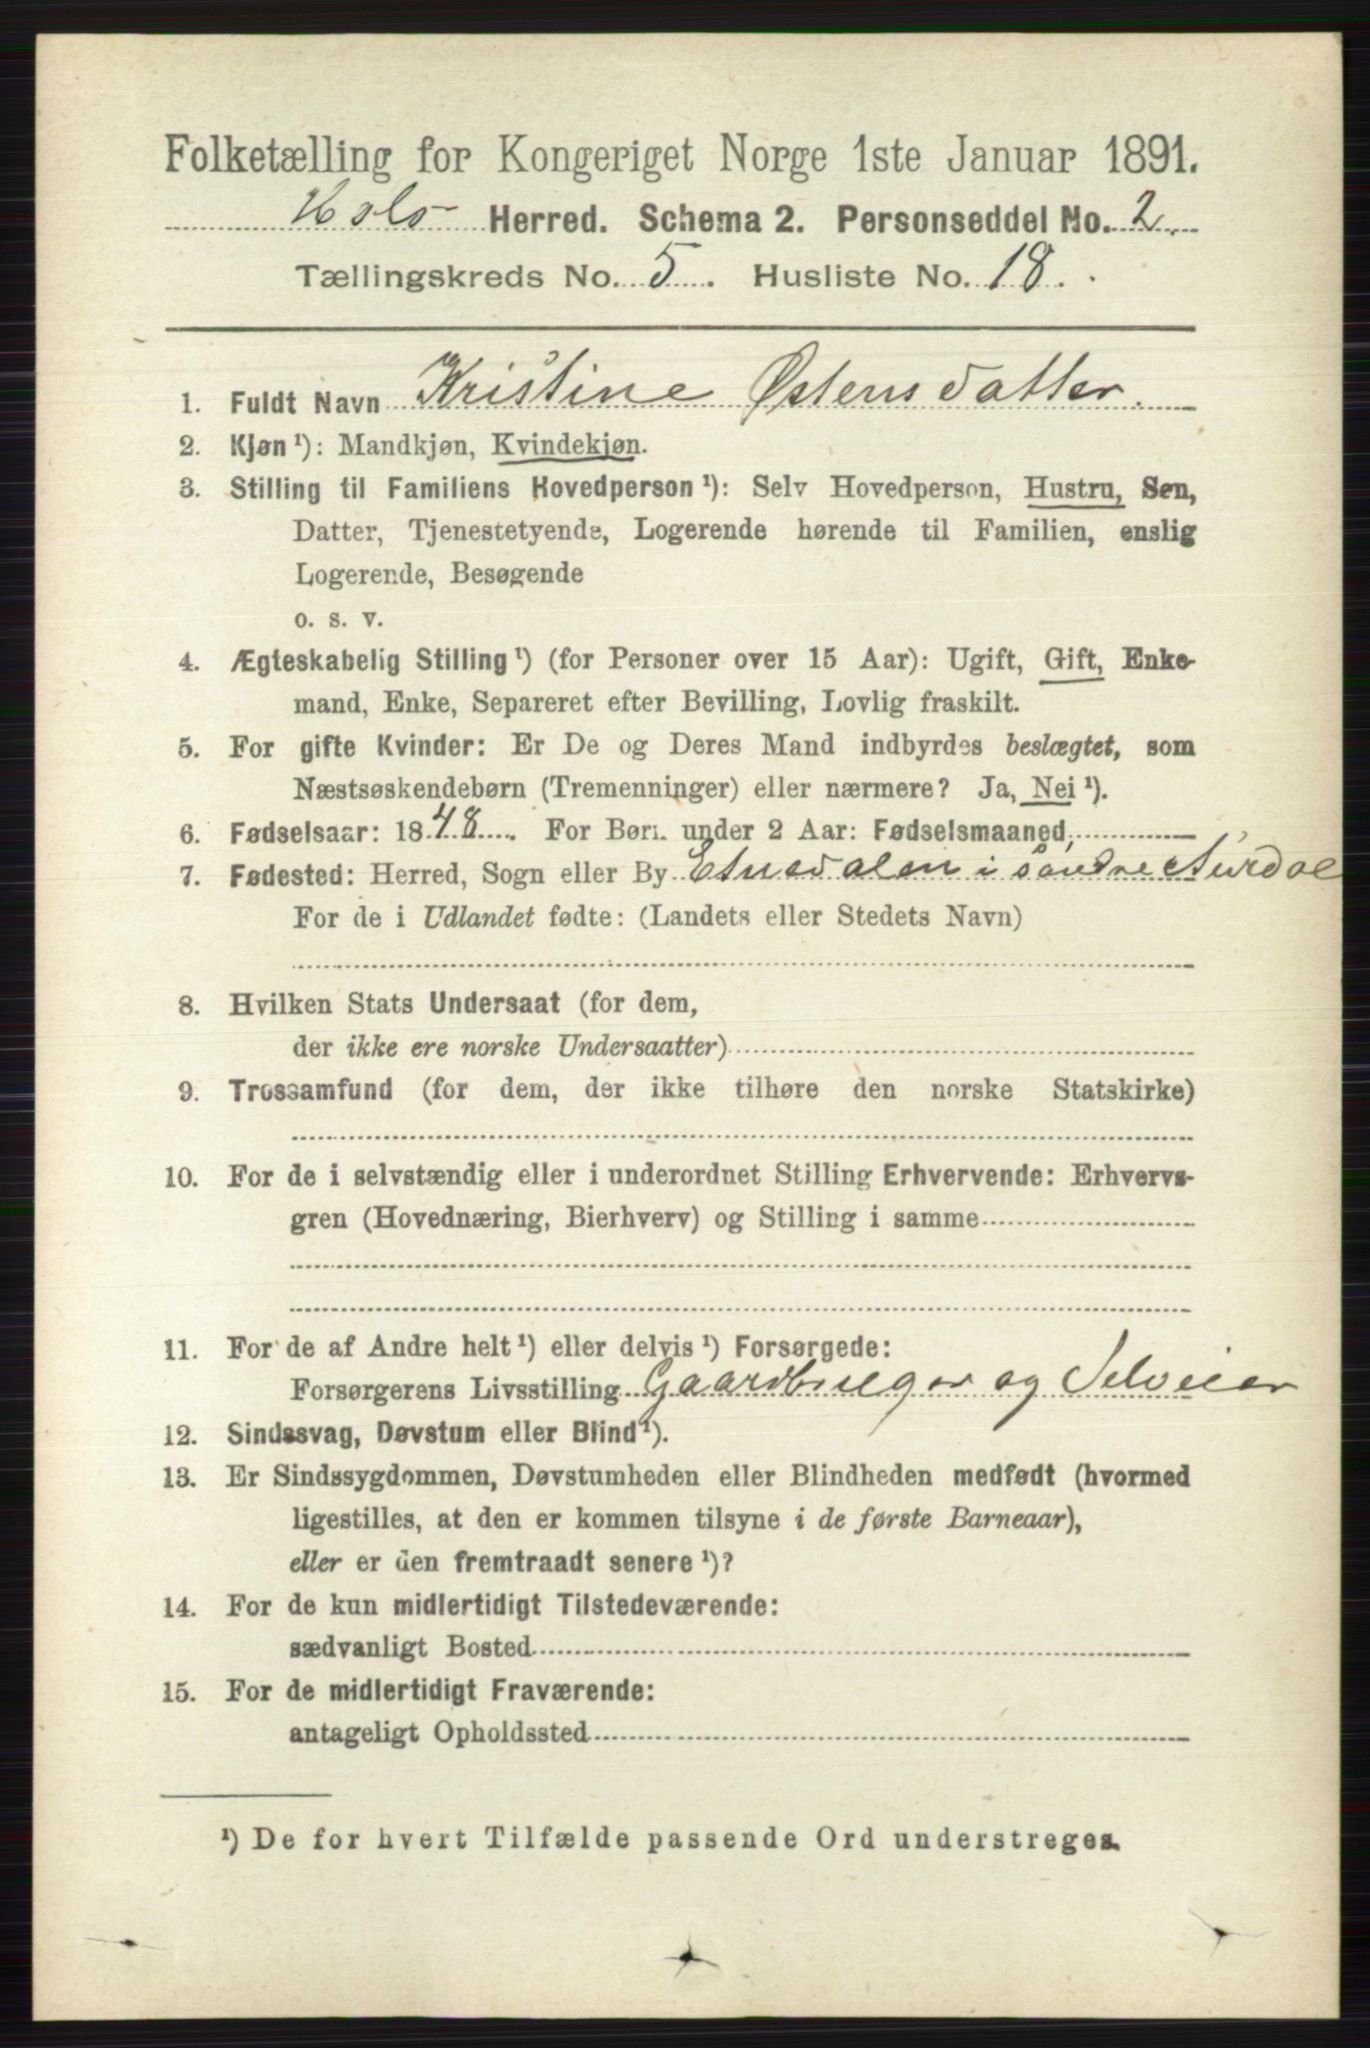 Folketælling for Kongeriget Norge 1ste Januar 1891.
Hols Herred. Schema 2. Personseddel No. 2.
Tællingskreds No. 5. Husliste No. 18.
1. Fuldt Navn Kristine Østensdatter.
2. Kjøn ¹): Mandkjøn, Kvindekjøn.
3. Stilling til Familiens Hovedperson ¹): Selv Hovedperson, Hustru, Søn,
Datter, Tjenestetyende, Logerende hørende til Familien, enslig
Logerende, Besøgende
o. s. v.
4. Ægteskabelig Stilling ¹) (for Personer over 15 Aar): Ugift, Gift, Enke-
mand, Enke, Separeret efter Bevilling, Lovlig fraskilt.
5. For gifte Kvinder: Er De og Deres Mand indbyrdes beslægtet, som
Næstsøskendebørn (Tremenninger) eller nærmere? Ja, Nei ¹).
6. Fødselsaar: 1848. For Børn under 2 Aar: Fødselsmaaned,
7. Fødested: Herred, Sogn eller By Etnedalen i søndre Aurdal
For de i Udlandet fødte: (Landets eller Stedets Navn)
8. Hvilken Stats Undersaat (for dem,
der ikke ere norske Undersaatter)
9. Trossamfund (for dem, der ikke tilhøre den norske Statskirke)
10. For de i selvstændig eller i underordnet Stilling Erhvervende: Erhvervs-
gren (Hovednæring, Bierhverv) og Stilling i samme
11. For de af Andre helt ¹) eller delvis ¹) Forsørgede:
Forsørgerens Livsstilling Gaardbruger og Selveier
12. Sindssvag, Døvstum eller Blind ¹).
13. Er Sindssygdommen, Døvstumheden eller Blindheden medfødt (hvormed
ligestilles, at den er kommen tilsyne i de første Barneaar),
eller er den fremtraadt senere ¹)?
14. For de kun midlertidigt Tilstedeværende:
sædvanligt Bosted
15. For de midlertidigt Fraværende:
antageligt Opholdssted
¹) De for hvert Tilfælde passende Ord understreges.